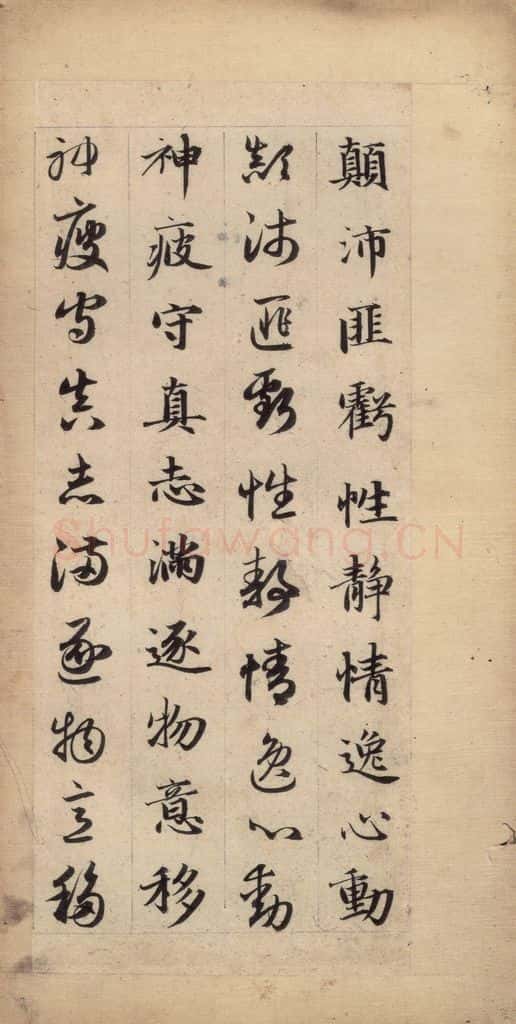 顛沛匪虧性靜情逸心動
顛沛匪虧性静情逸心動
神疲守真志滿逐物意移
神疲守真志滿逐物意移
Shufawang.CN